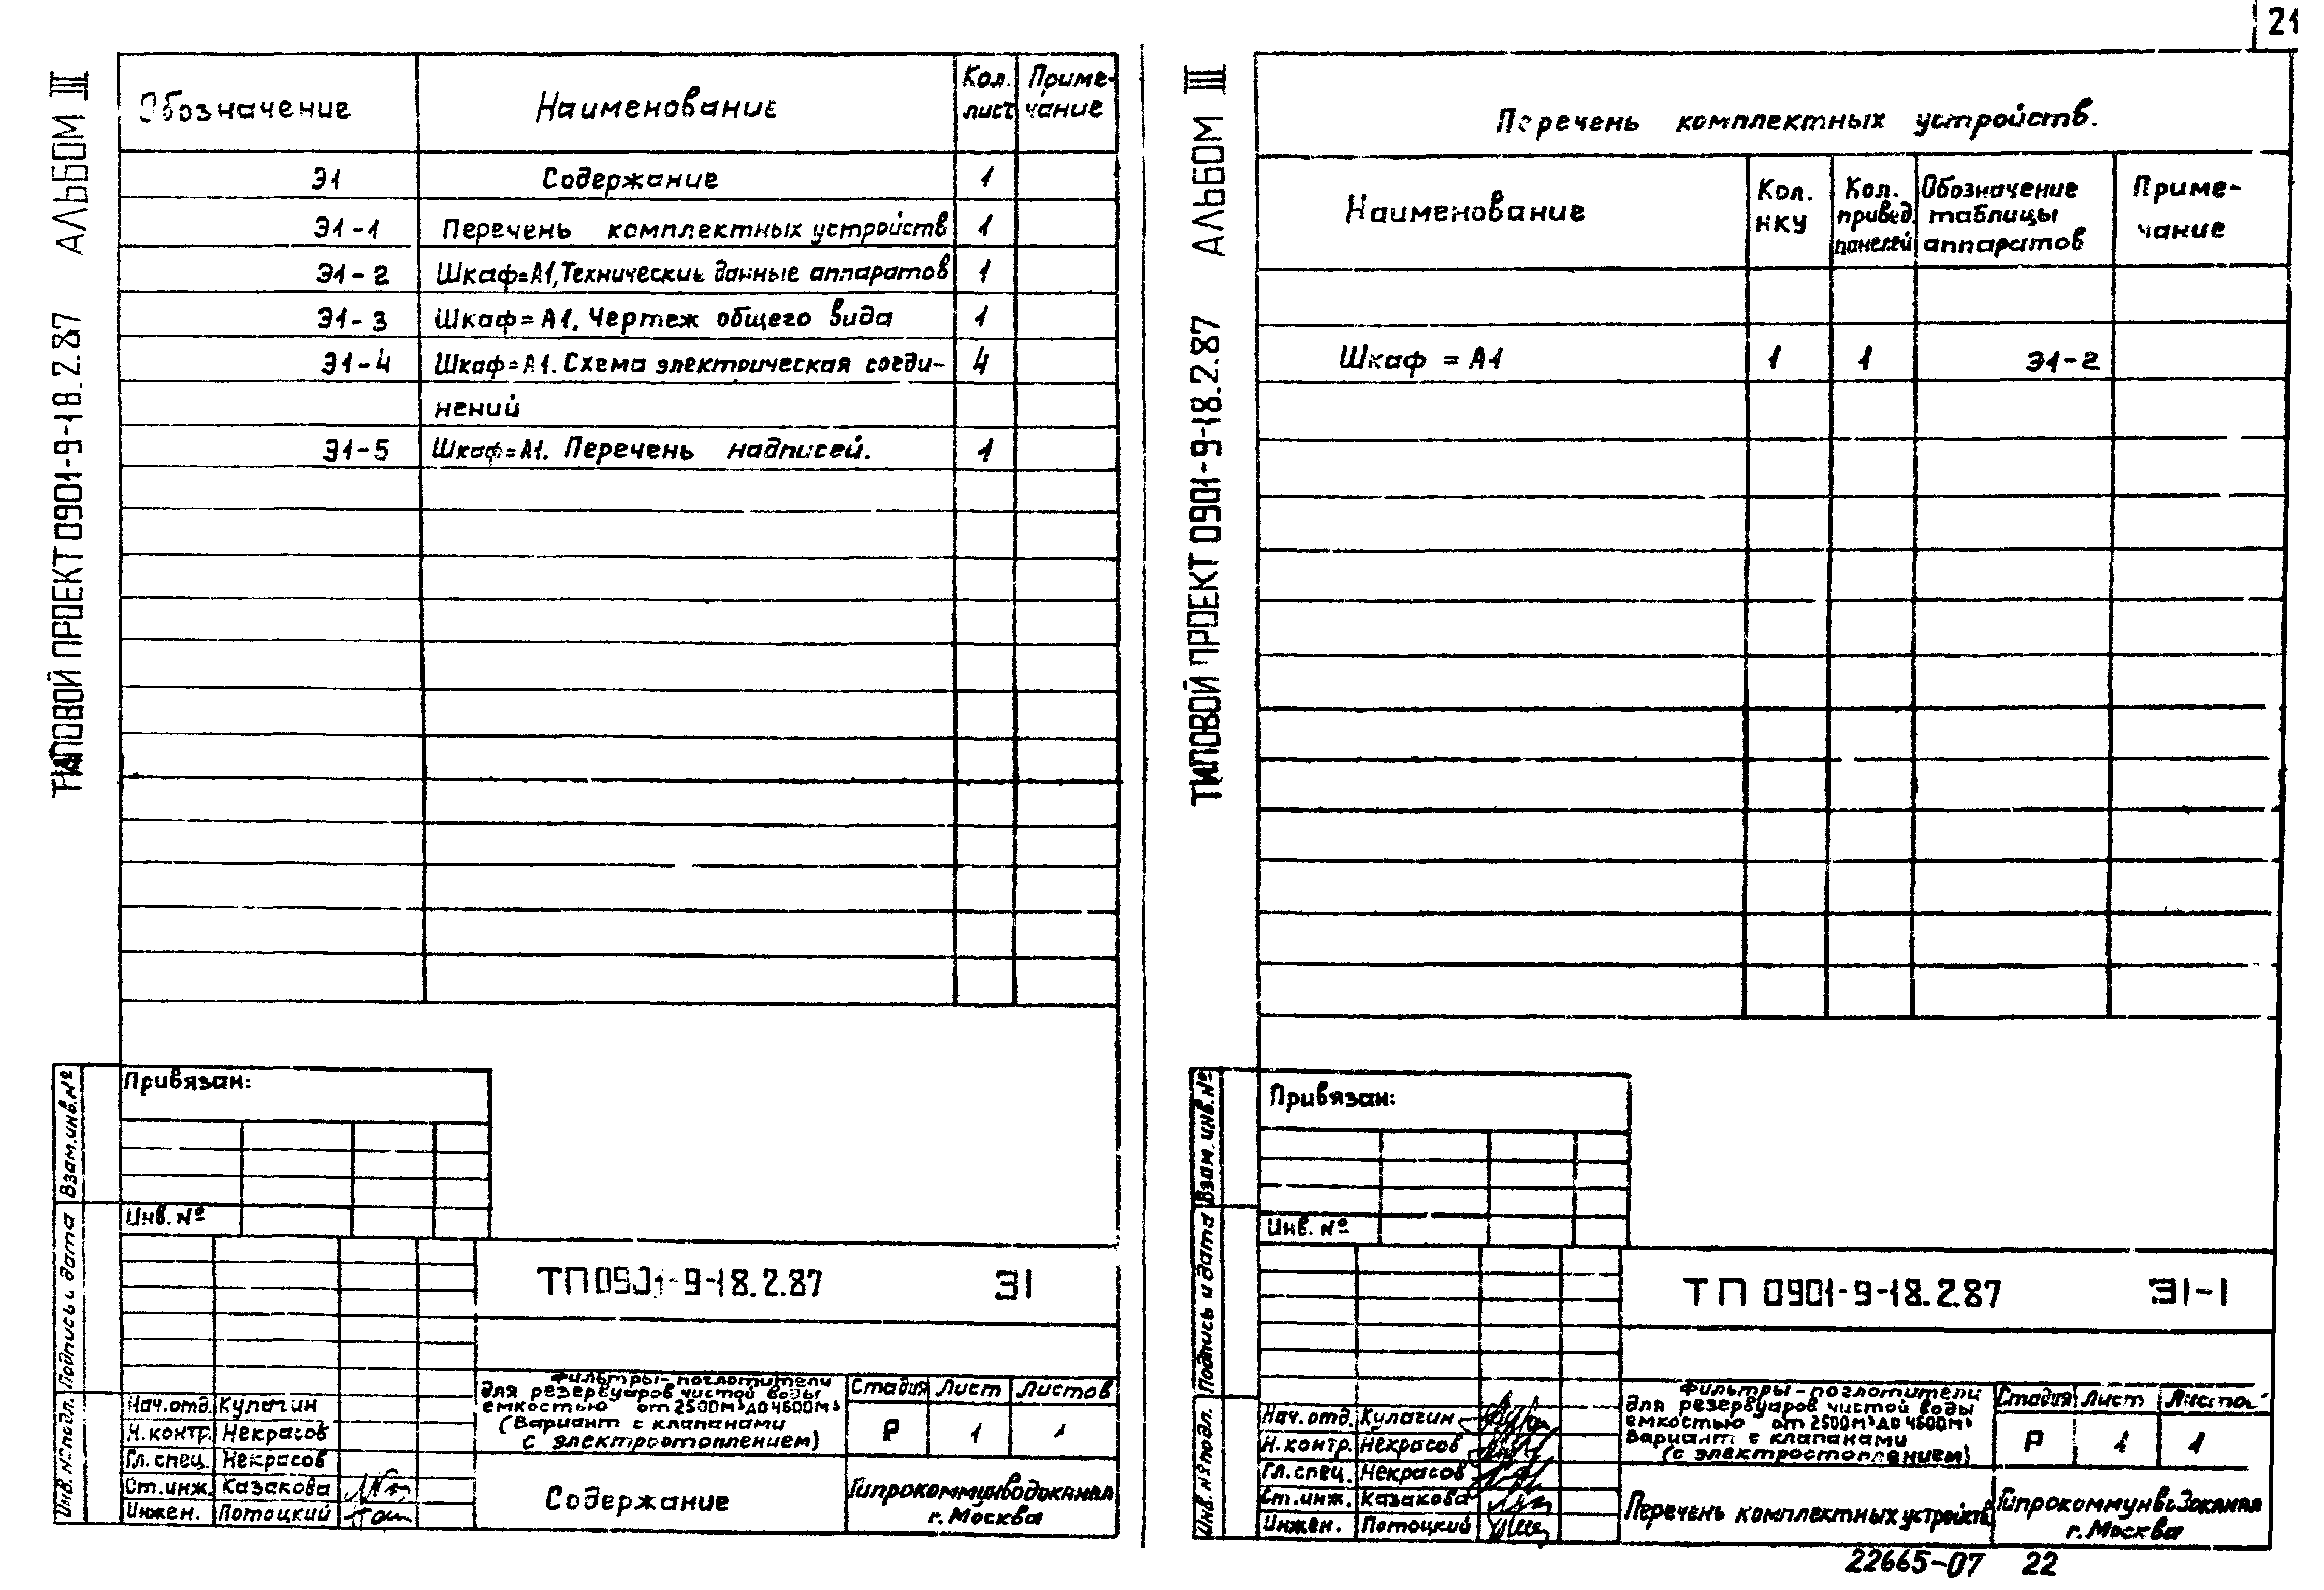 21
ТИПОВОЙ ПРОЕКТ 0901-9-18.2.87 АЛЬБОМ III
Обозначение Наименование Кол. лист Приме-чание
Э1 Содержание 1
Э1-1 Перечень комплектных устройств 1
Э1-2 Шкаф=А1, Технические данные аппаратов 1
Э1-3 Шкаф=А1. Чертеж общего вида 1
Э1-4 Шкаф=А1. Схема электрическая соеди- 4
нений
Э1-5 Шкаф=А1. Перечень надписей. 1
Привязан:
Инв. №
Инв. № подл. Подпись и дата Взам.инв.№
ТП 0901-9-18.2.87 Э1
Нач.отд. Кулагин
Н.контр. Некрасов
Гл.спец. Некрасов
Ст.инж. Казакова
Инжен. Потоцкий
Фильтры-поглотители
для резервуаров чистой воды
емкостью от 2500м³ до 4600м³
(Вариант с клапанами
с электроотоплением)
Стадия Лист Листов
Р 1 1
Содержание
Гипрокоммунводоканал
г. Москва
ТИПОВОЙ ПРОЕКТ 0901-9-18.2.87 АЛЬБОМ III
Перечень комплектных устройств.
Наименование Кол. НКУ Кол. привед. панелей Обозначение таблицы аппаратов Приме-чание
Шкаф = А1 1 1 Э1-2
Привязан:
Инв. №
Инв. № подл. Подпись и дата Взам. инв. №
ТП 0901-9-18.2.87 Э1-1
Нач.отд. Кулагин
Н.контр. Некрасов
Гл.спец. Некрасов
Ст.инж. Казакова
Инжен. Потоцкий
Фильтры-поглотители
для резервуаров чистой воды
емкостью от 2500м³ до 4600м³
Вариант с клапанами
(с электроотоплением)
Стадия Лист Листов
Р 1 1
Перечень комплектных устройств
Гипрокоммунводоканал
г. Москва
22665-07 22